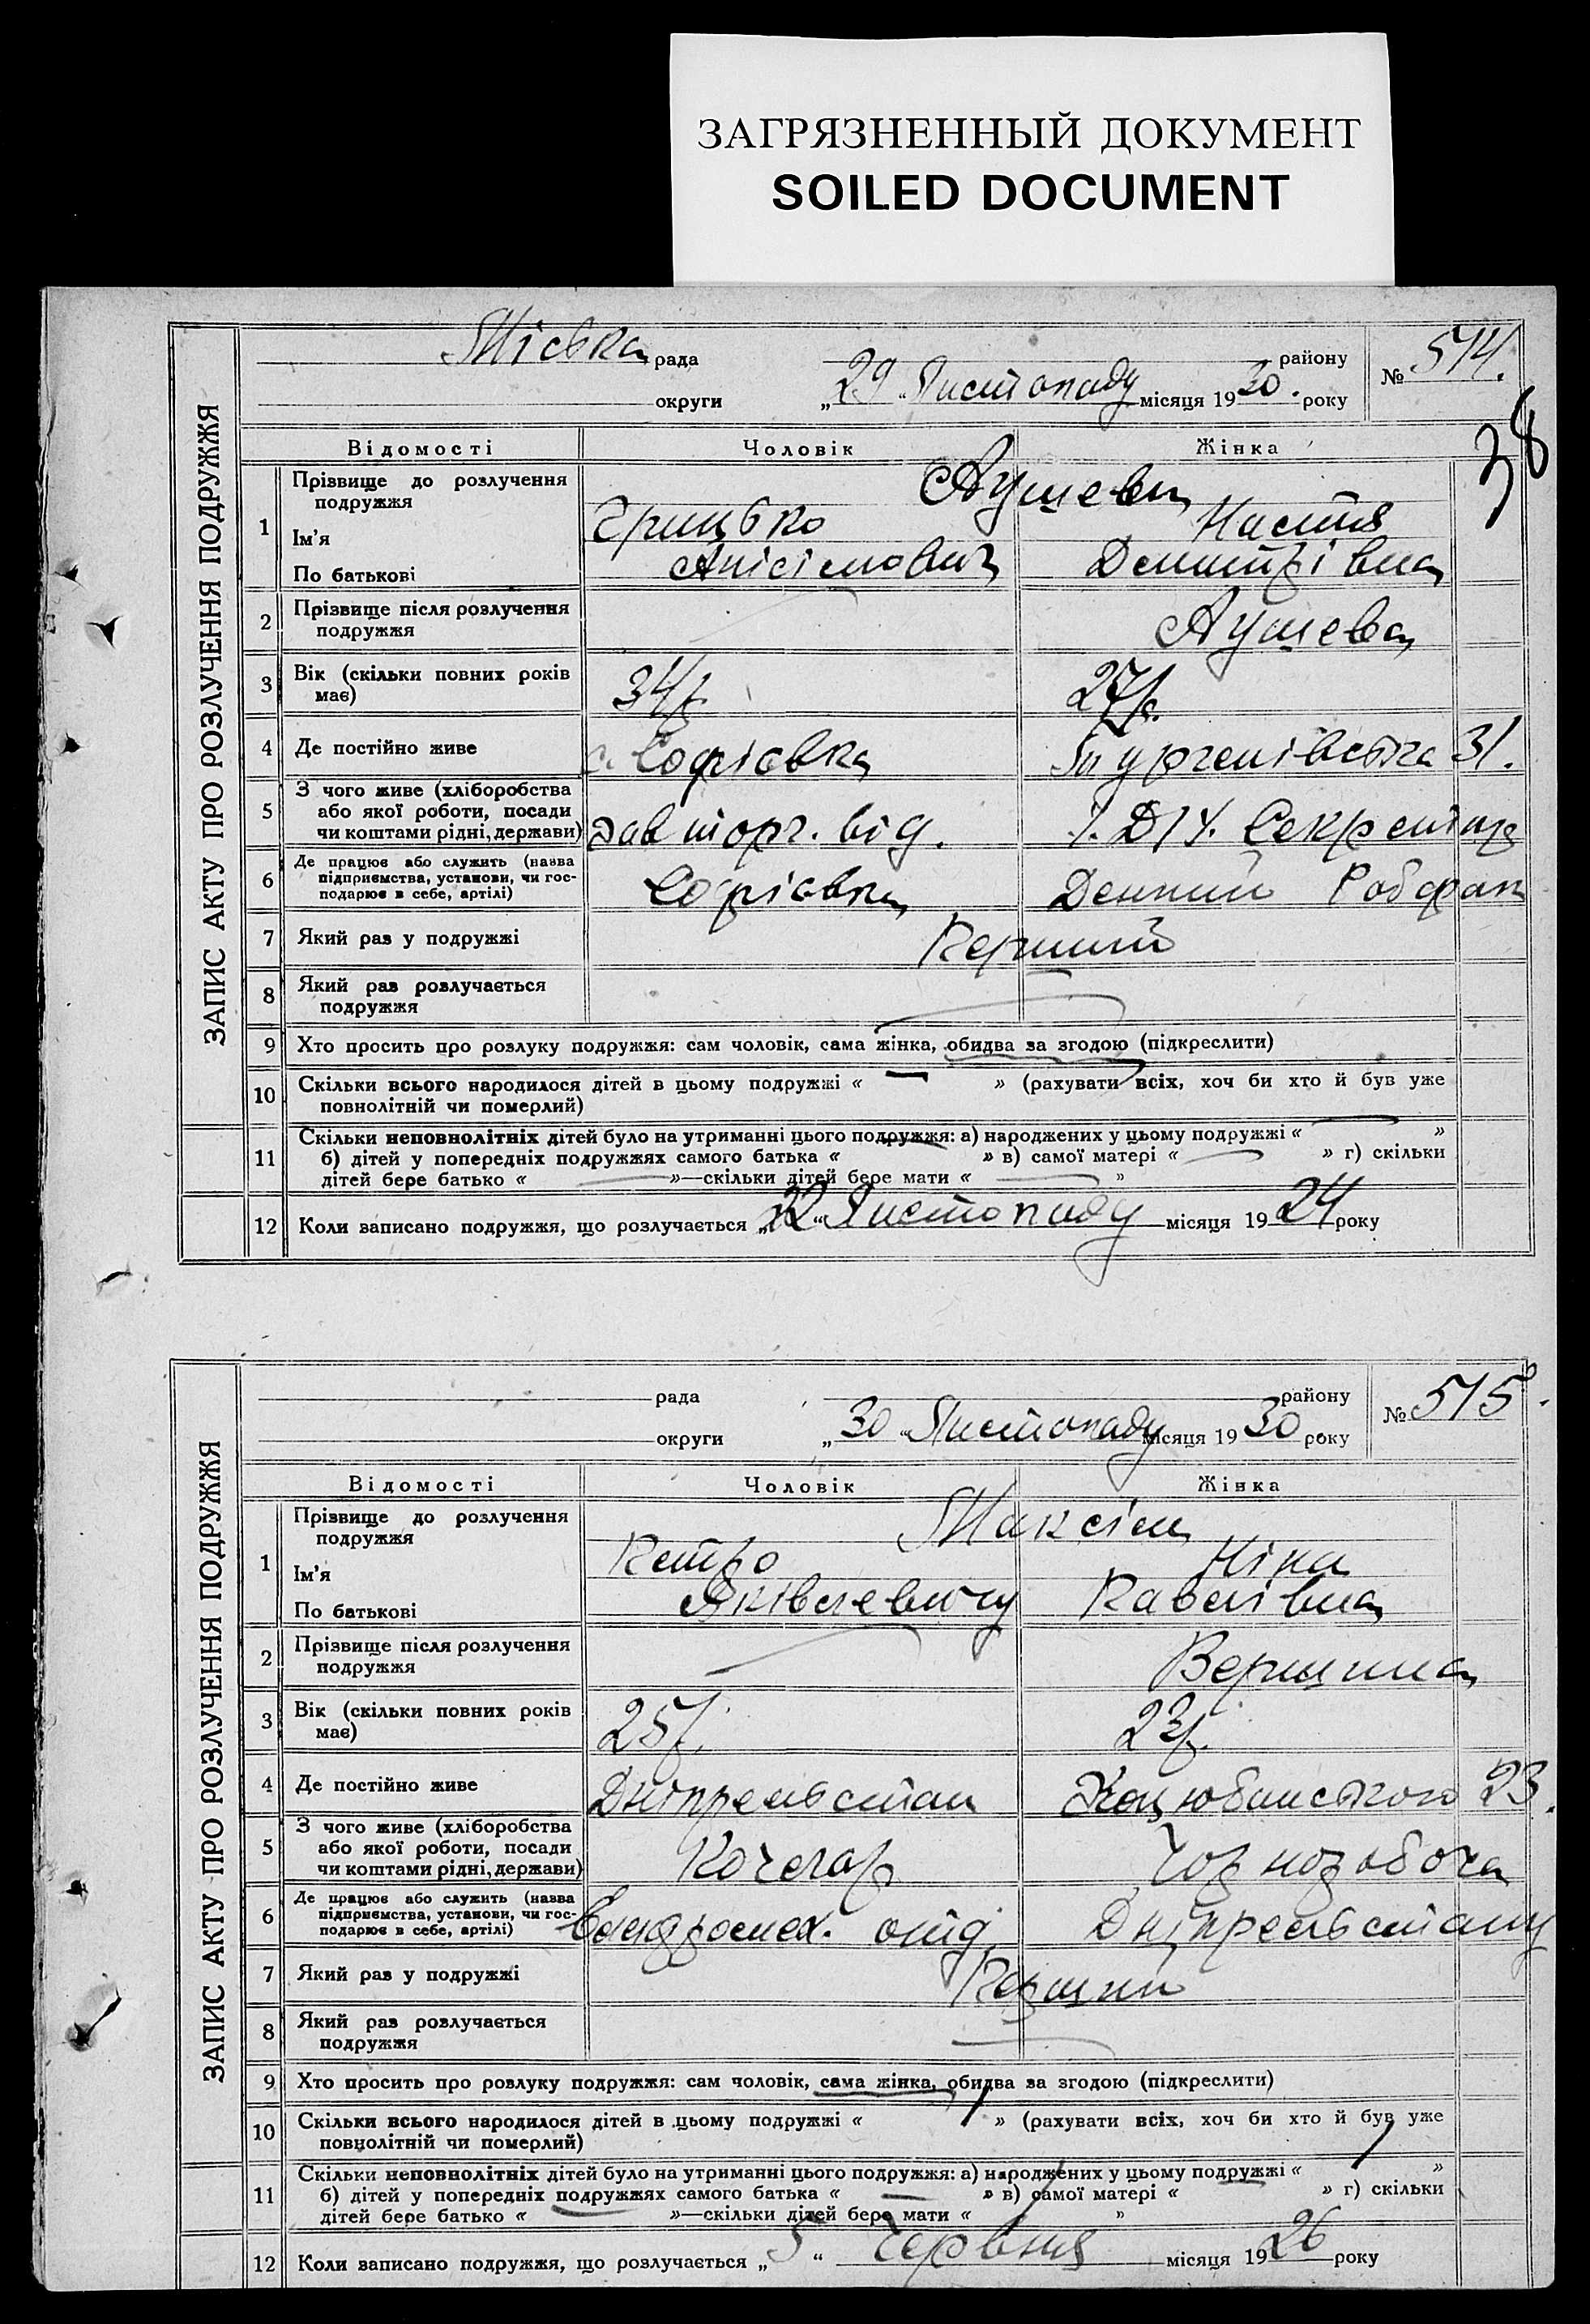 ЗАГРЯЗНЕННЫЙ ДОКУМЕНТ
SOILED DOCUMENT
ЗАПИС АКТУ ПРО РОЗЛУЧЕННЯ ПОДРУЖЖЯ
Міська рада району № 514.
округи „29“ Листопаду місяця 1930. року
38
Відомості Чоловік Жінка
1 Прізвище до розлучення подружжя Аушева
Ім'я Грицько Настя
По батькові Анісімович Демитрівна
2 Прізвище після розлучення
подружжя Аушева
3 Вік (скільки повних років
має) 34р. 27р.
4 Де постійно живе с. Софіівка 31.
5 З чого живе (хліборобства
або якої роботи, посади
чи коштами рідні, держави) Зав торг. від. Секретар
6 Де працює або служить (назва
підприємства, установи, чи гос-
подарює в себе, артілі) Софіівка Денний Робфак
7 Який раз у подружжі Перший
8 Який раз розлучається
подружжя
9 Хто просить про розлуку подружжя: сам чоловік, сама жінка, обидва за згодою (підкреслити)
10 Скільки всього народилося дітей в цьому подружжі « — » (рахувати всіх, хоч би хто й був уже
повнолітній чи померлий)
11 Скільки неповнолітніх дітей було на утриманні цього подружжя: а) народжених у цьому подружжі « — »
б) дітей у попередніх подружжях самого батька « » в) самої матері « — » г) скільки
дітей бере батько « — »—скільки дітей бере мати « — »
12 Коли записано подружжя, що розлучається „22“ Листопаду місяця 1924 року
ЗАПИС АКТУ ПРО РОЗЛУЧЕННЯ ПОДРУЖЖЯ
рада району № 515.
округи „30“ Листопаду місяця 1930 року
Відомості Чоловік Жінка
1 Прізвище до розлучення
подружжя Максім
Ім'я Петро Ніна
По батькові Яківлевичу Павлівна
2 Прізвище після розлучення
подружжя Вершина
3 Вік (скільки повних років
має) 25р. 23р.
4 Де постійно живе Дніпрельстан Коцюбинського 23.
5 З чого живе (хліборобства
або якої роботи, посади
чи коштами рідні, держави) Кочегар Чорнороботча
6 Де працює або служить (назва
підприємства, установи, чи гос-
подарює в себе, артілі) отд. Дніпрельстану
7 Який раз у подружжі Перший
8 Який раз розлучається
подружжя
9 Хто просить про розлуку подружжя: сам чоловік, сама жінка, обидва за згодою (підкреслити)
10 Скільки всього народилося дітей в цьому подружжі « 1 » (рахувати всіх, хоч би хто й був уже
повнолітній чи померлий)
11 Скільки неповнолітніх дітей було на утриманні цього подружжя: а) народжених у цьому подружжі « 1 »
б) дітей у попередніх подружжях самого батька « — » в) самої матері « — » г) скільки
дітей бере батько « — »—скільки дітей бере мати « 1 »
12 Коли записано подружжя, що розлучається „5“ Червня місяця 1926 року